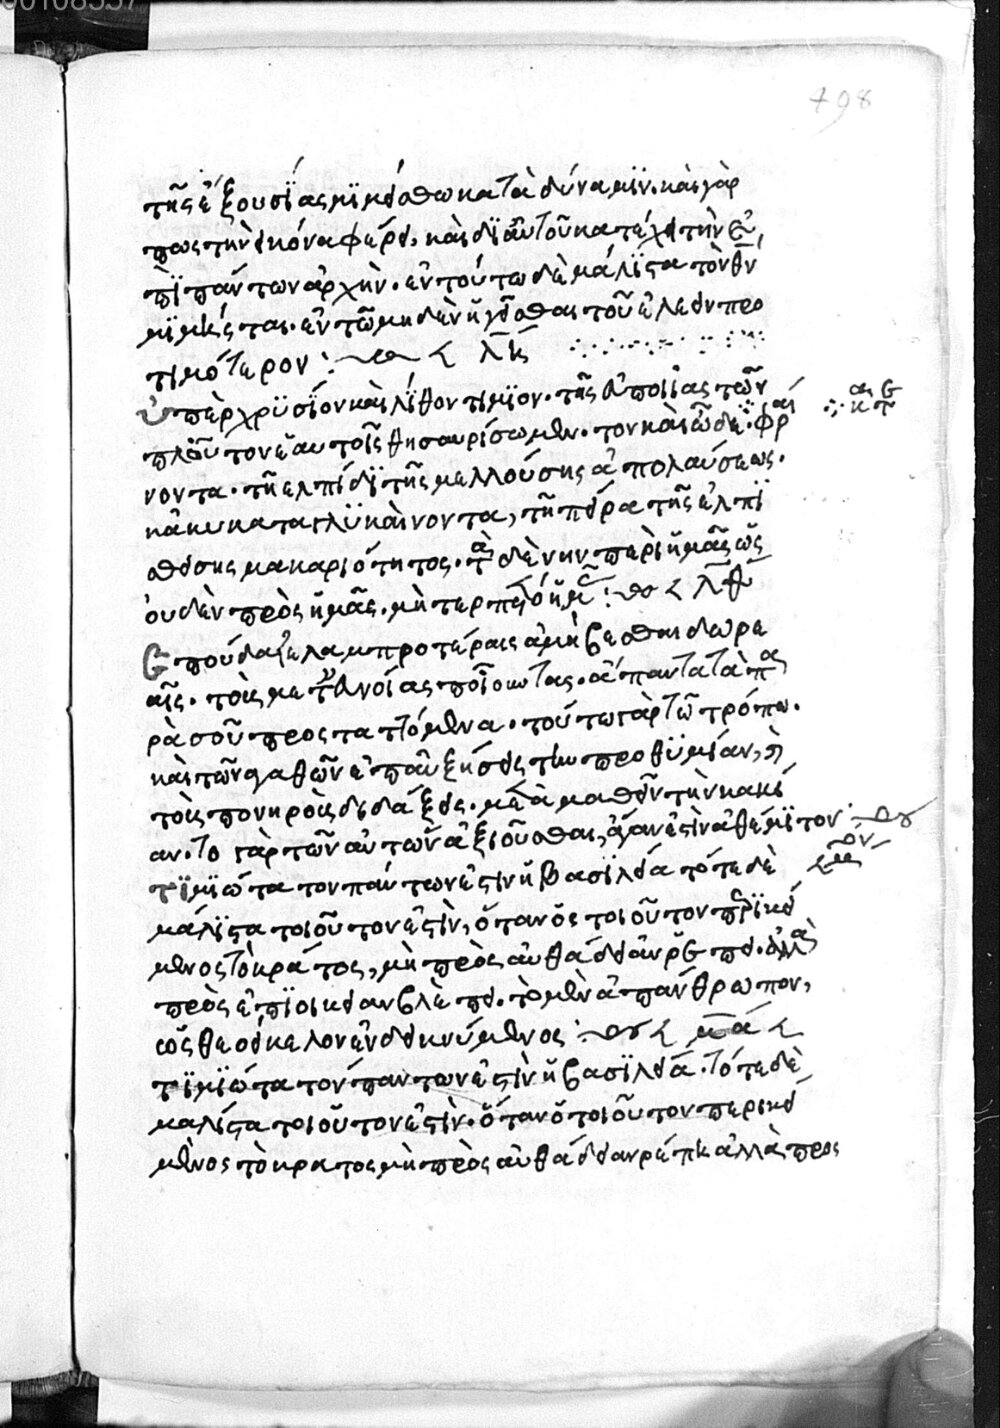 00108557
498
τῆς ἐξουσίας μιμείσθω κατὰ δύναμιν. καὶ γάρ
πως τὴν εἰκόνα φέρει. καὶ δι αὐτοῦ κατέχει τὴν ἐ
πὶ πάντων ἀρχήν. ἐν τούτω δὲ μάλιστα τὸν θν
μιμήσεται. ἐν τῶ μηδὲν ἡγεῖσθαι τοῦ ἐλεεῖν προ
τιμότερον :
ὑπὲρ χρυσίον καὶ λίθον τιμιον. τῆς εὐποιίας τῶν
πλοῦτον ἑαυτοῖς θησαυρίσωμεν. τον καὶ ὧδε εὐφραί
νοντα. τῆ ελπίδι τῆς μελλούσης ἀπολαύσεως.
κἀκει καταγλυκαίνοντα, τῆ πείρα τῆς ἐλπι
σθείσης μακαριότητος. τὰ δὲ νῦν περὶ ἡμᾶς ὡς
ουδὲν πρὸς ἡμᾶς. μὴ τερπέτω ἡμᾶς : λθ
σπούδαζε λαμπροτέραις ἀμείβεσθαι δωρε
αῖς. τοὺς μετ εὐνοίας ποιοῦντας. ἅπαντα τὰ πα
ρὰ σοῦ προσταττόμενα. τούτω γὰρ τῶ τρόπω.
καὶ τῶν ἀγαθῶν ἐπαυξήσεις τὴν προθυμίαν, κ
τοὺς πονηροὺς διδάξεις. μεταμαθεῖν τὴν κακί
αν. το γὰρ τῶν αὐτῶν ἀξιοῦσθαι, ἄγαν ἐστὶν ἀθέμιτον
τιμιώτατον πάντων ἐστὶν ἡ βασιλεία τότε δὲ
μάλιστα τοιοῦτον ἐστὶν, ὅταν ὁ τοιοῦτον περικεί
μενος τὸ κράτος, μὴ πρὸς αὐθάδειαν ῥέπει. ἀλλὰ
πρὸς ἐπιείκειαν βλέπει. τὸ μὲν ἀπάνθρωπον,
ὡς θεοείκελον ἐνδεικνύμενος μα
τιμιώτατον πάντων ἐστὶν ἡ βασιλεία. τότε δὲ
μαλίστα τοιοῦτον ἐστὶν. ὅταν ὁ τοιοῦτον περικεί
μενος τὸ κρατος μὴ πρὸς αὐθάδειαν ρέπει ἀλλὰ προς